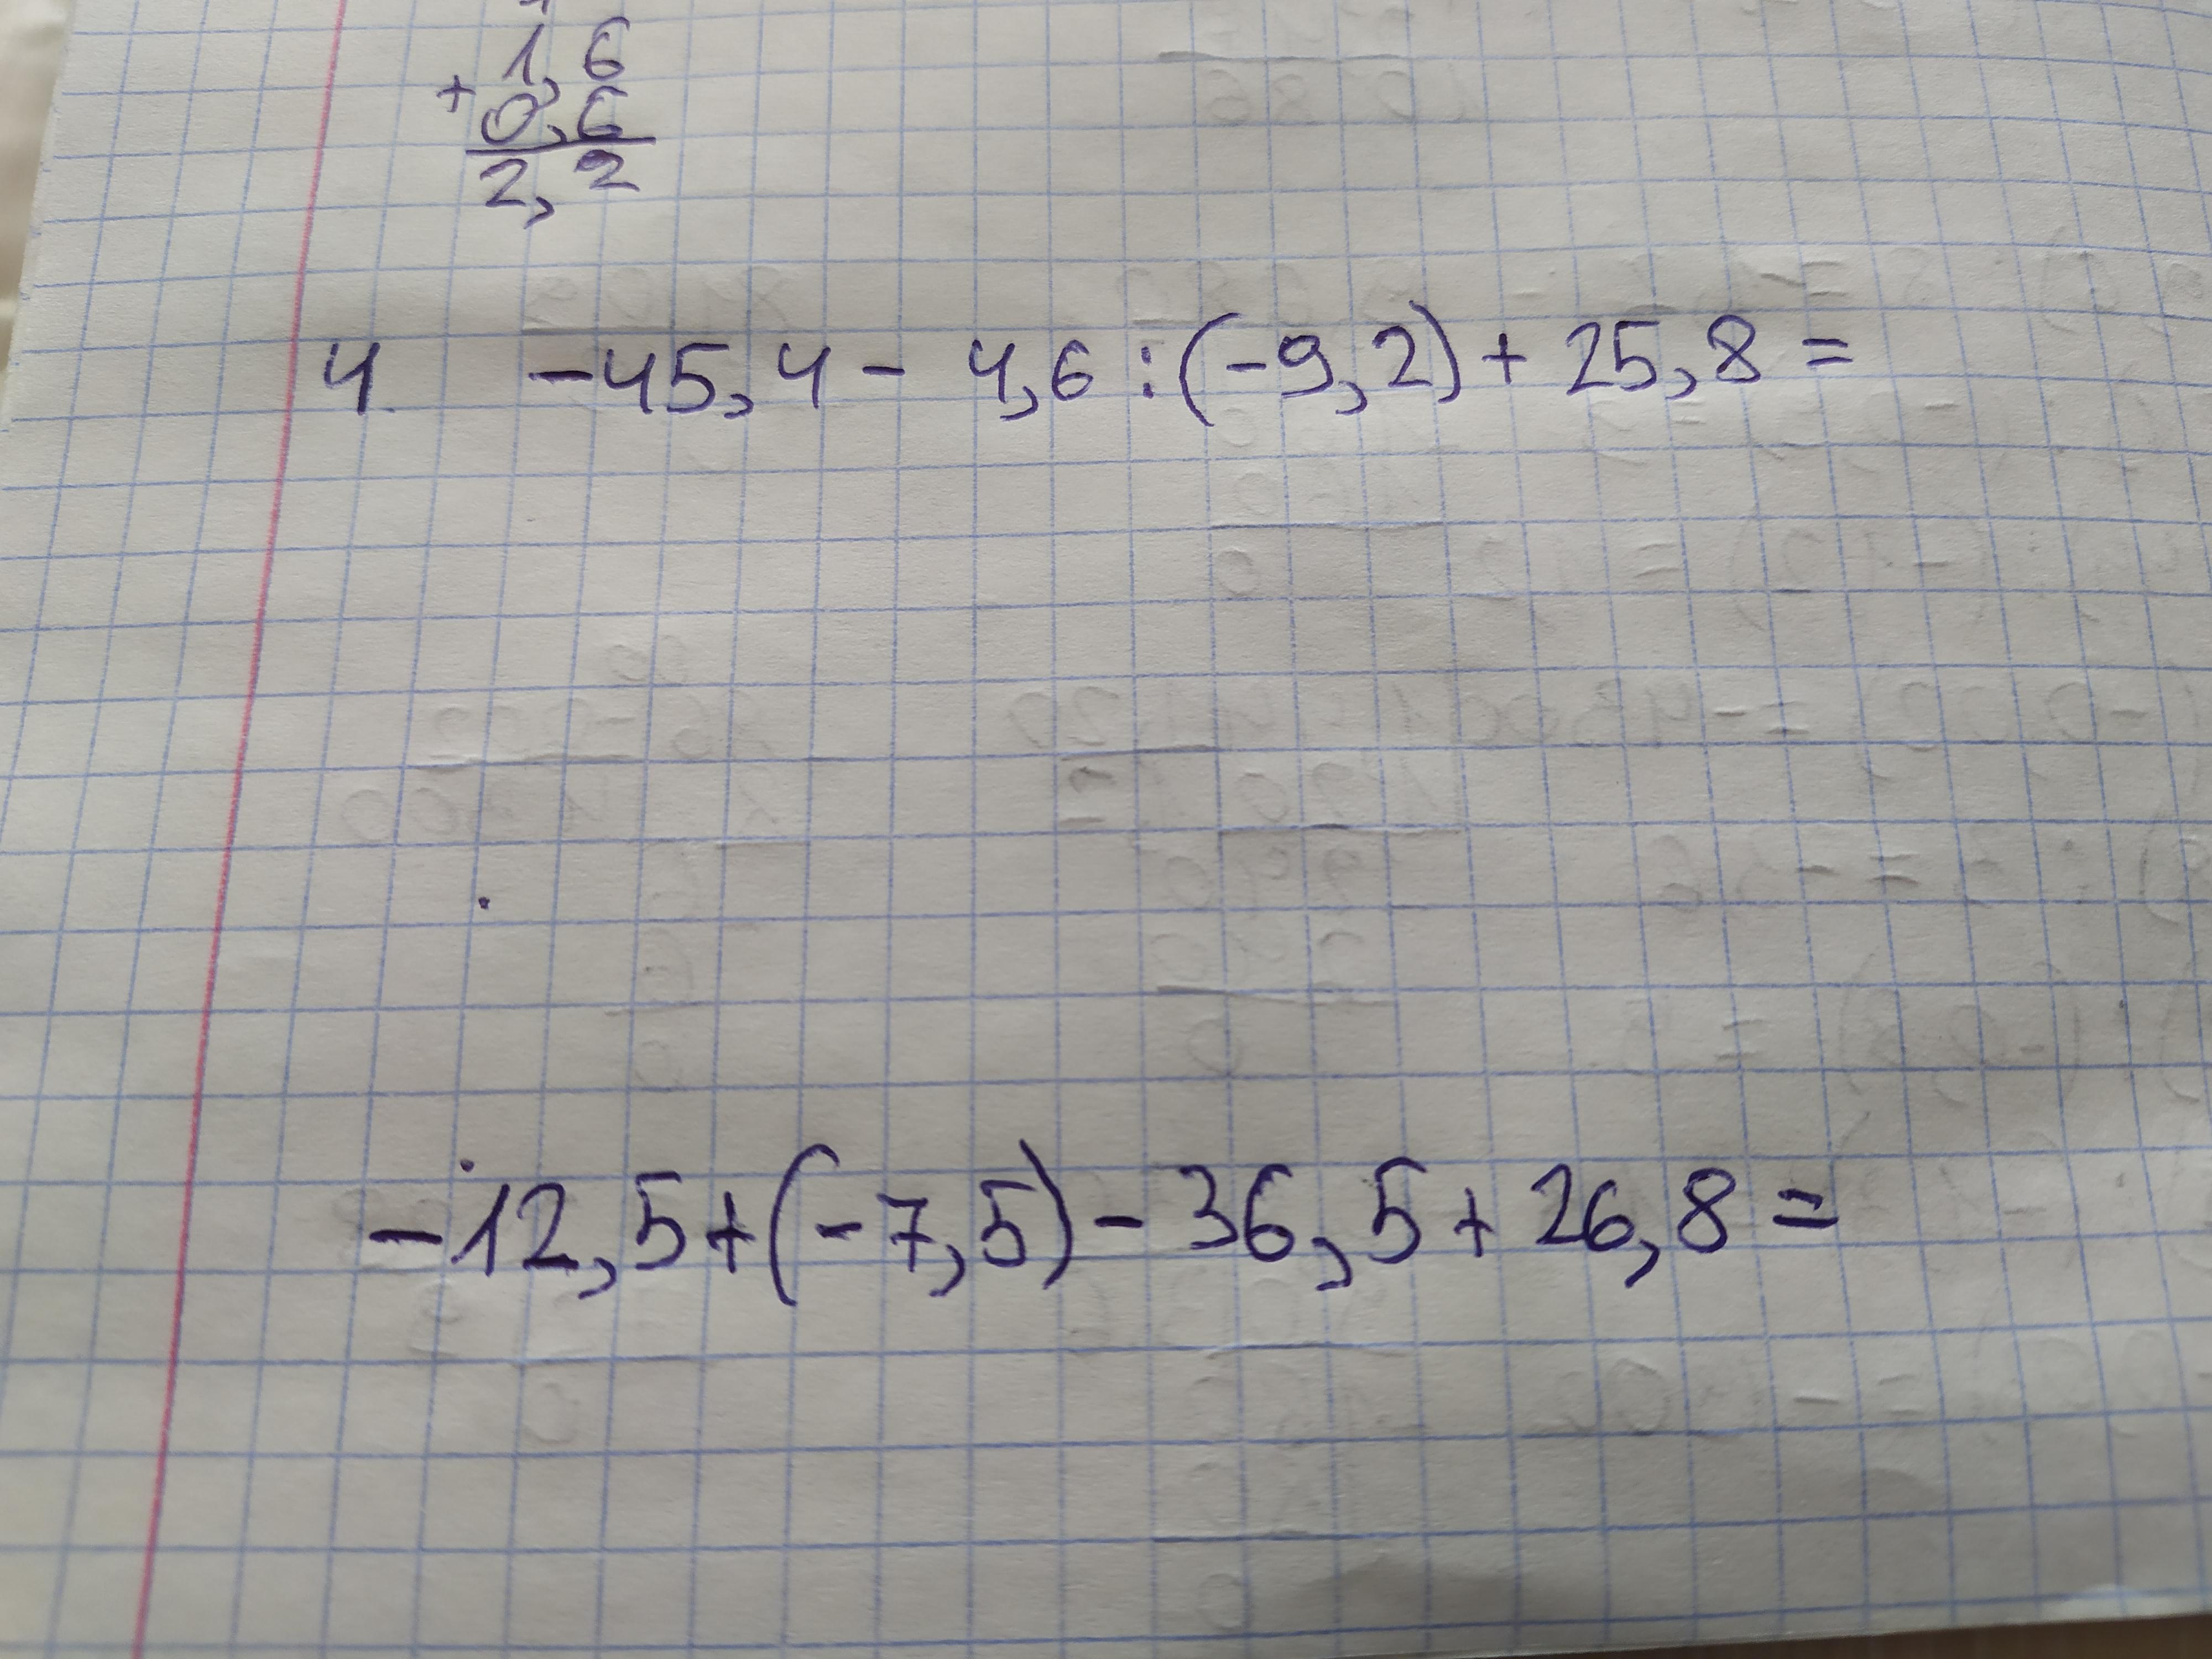 1,6
+ 0,6
2,2
4 -45,4 - 4,6 : (-9,2) + 25,8 =
-12,5 + (-7,5) - 36,5 + 26,8 =